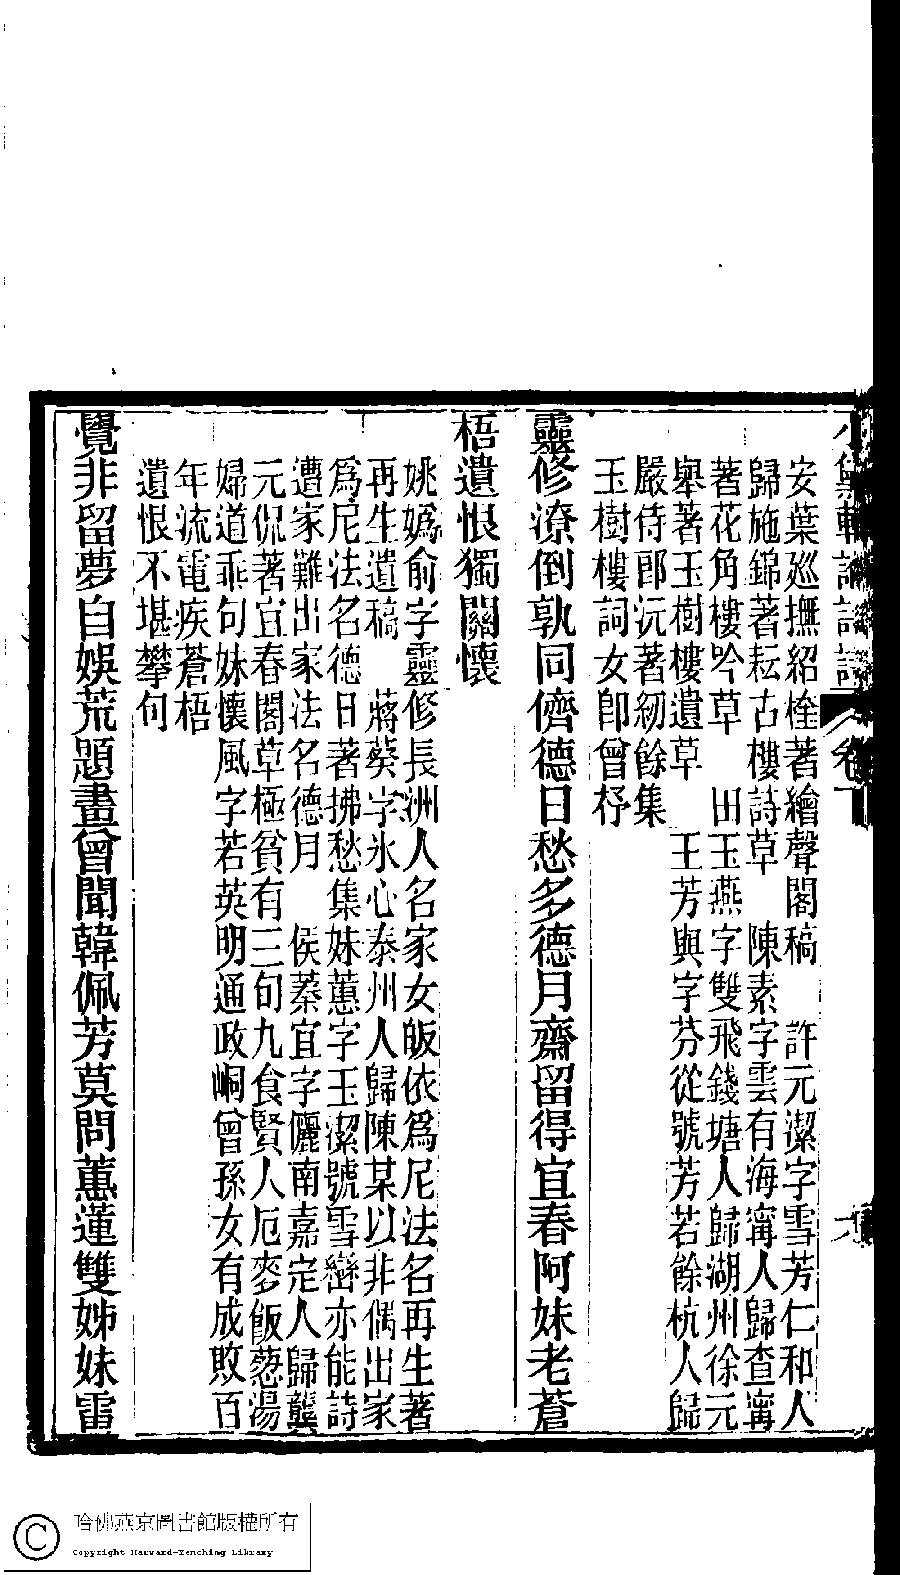 安葉廵撫紹楏著繪聲閣稿　許元潔字雪芳仁和人
歸施錦著耘古樓詩草　陳素字雲有海寗人歸查寗
著花角樓吟草　田玉燕字雙飛錢塘人歸湖州徐元
舉著玉樹樓遺草　王芳與字芬從號芳若餘杭人歸
嚴侍郎沆著紉餘集
玉樹樓詞女卽曾杼
靈修潦倒孰同儕德日愁多德月齋留得宜春阿妹老蒼
梧遺恨獨關懷
姚嬀俞字靈修長洲人名家女皈依爲尼法名再生著
再生遺稿　蔣葵字氷心泰州人歸陳某以非偶出家
爲尼法名德日著拂愁集妹蕙字玉潔號雪巒亦能詩
遭家難出家法名德月　侯蓁宜字儷南嘉定人歸龔
元侃著宜春閣草極貧有三旬九食賢人厄麥飯葱湯
婦道乖句妹懷風字若英明通政峒曾孫女有成敗百
年流電疾蒼梧
遺恨不堪攀句
覺非留夢自娛荒題畫曾聞韓佩芳莫問蕙蓮雙姊妹雷
哈佛燕京圖書館版權所有
Copyright Harvard-Yenching Library